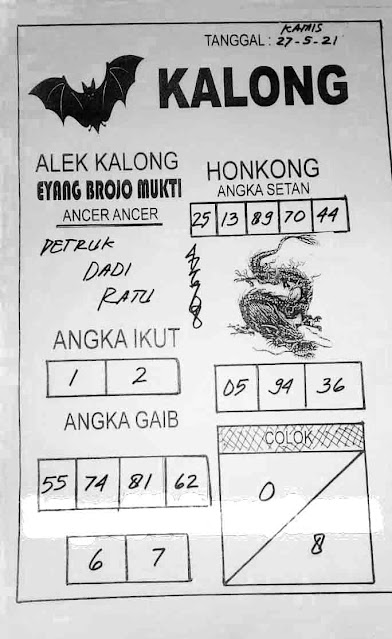 KAMIS
TANGGAL : 27-5-21
KALONG
ALEK KALONG
EYANG BROJO MUKTI
ANCER ANCER
PETRUK
DADI
RATU
HONKONG
ANGKA SETAN
25 13 89 70 44
ANGKA IKUT
1 2
05 94 36
ANGKA GAIB
55 74 81 62
6 7
COLOK
0
8